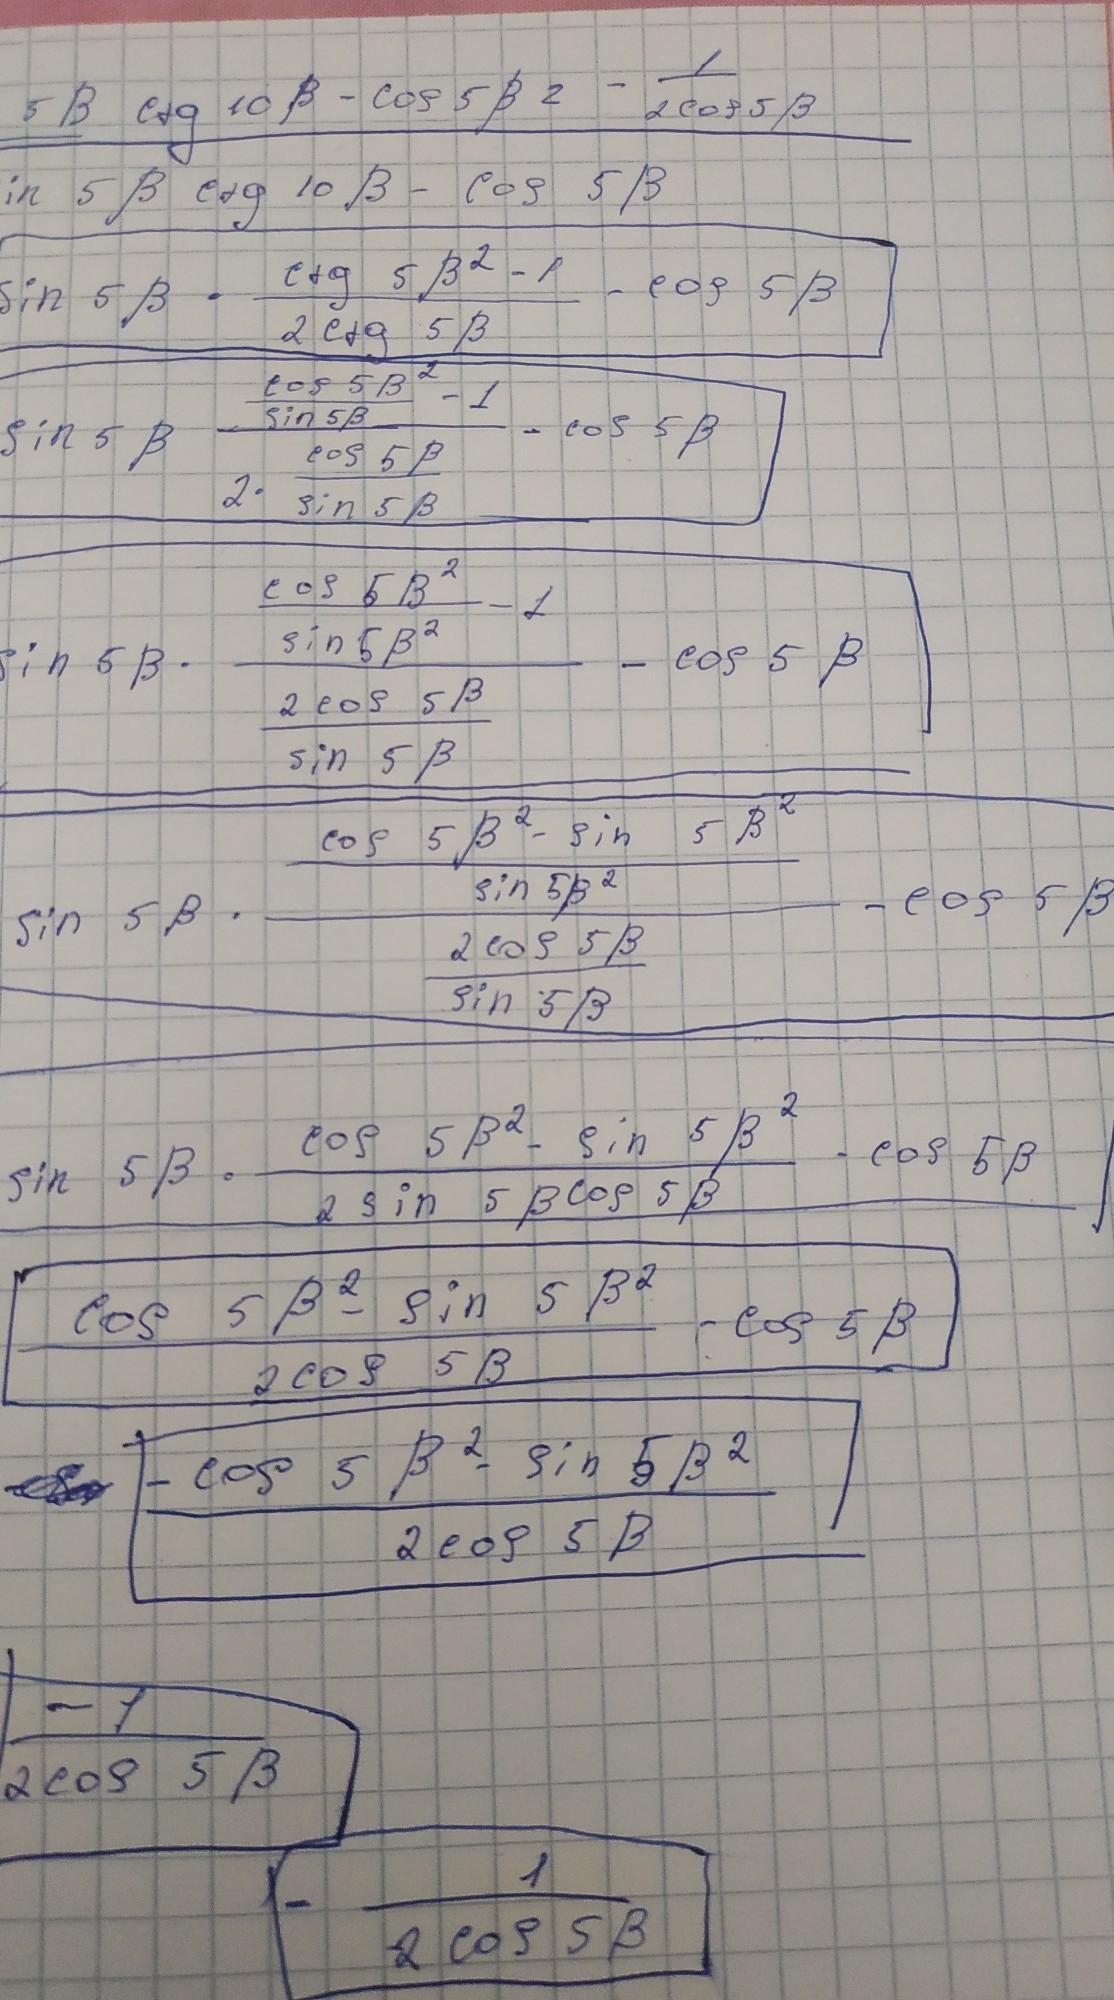 5β ctg 10β - cos 5β = - 1/2cos5β
in 5β ctg 10β - cos 5β
sin 5β · ctg 5β² - 1 / 2ctg 5β - cos 5β
sin 5β cos 5β² / sin 5β - 1 / 2 · cos 5β / sin 5β - cos 5β
sin 5β · cos 5β² / sin 5β² - 1 / 2 cos 5β / sin 5β - cos 5β
sin 5β · cos 5β² - sin 5β² / sin 5β² / 2 cos 5β / sin 5β - cos 5β
sin 5β · cos 5β² - sin 5β² / 2 sin 5β cos 5β - cos 5β
cos 5β² - sin 5β² / 2cos 5β - cos 5β
- cos 5β² - sin 5β² / 2cos 5β
-1 / 2cos 5β
- 1 / 2 cos 5β